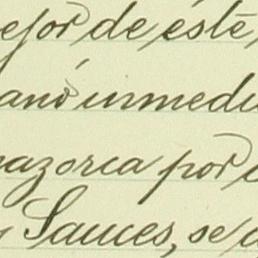 ejor de éste,
anó inmedia
mazorca por
Sauces, se